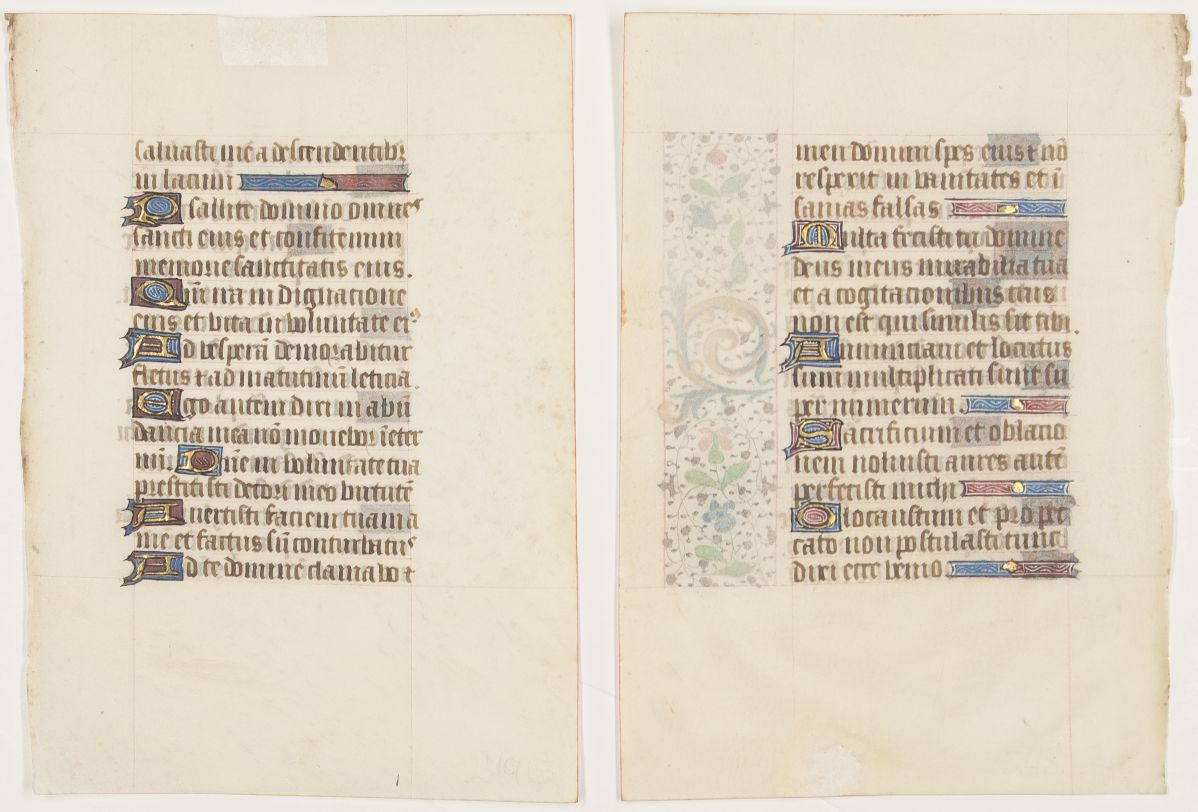 saluasti me a descendentibꝫ
in lacum
Psallite domino omnes
sancti eius et confitemini
memorie sanctitatis eius.
Qm̄ ira in dignacione
eius et vita in voluntate eiꝰ
Ad vesperā demorabitur
fletus ⁊ ad matutinū leticia.
Ego autem dixi in abū
dancia mea nō mouebor ī eter
nū. Dn̄e in voluntate tua
prestitisti decori meo virtutē
Auertisti faciem tuam a
me et factus sū conturbatus
Ad te domine clamabo ⁊
men domini spes eius ⁊ nō
respexit in vanitates et ī
sanias falsas
Multa fecisti tu domine
deus meus mirabilia tua
et a cogitacionibus tuis
non est qui similis sit tibi.
Annunciaui et locutus
sum multiplicati sunt su
per numerum.
Sacrificium et oblacio
nem noluisti aures autē
perfecisti michi
Olocaustum et pro pec
cato non postulasti tunc
dixi ecce venio